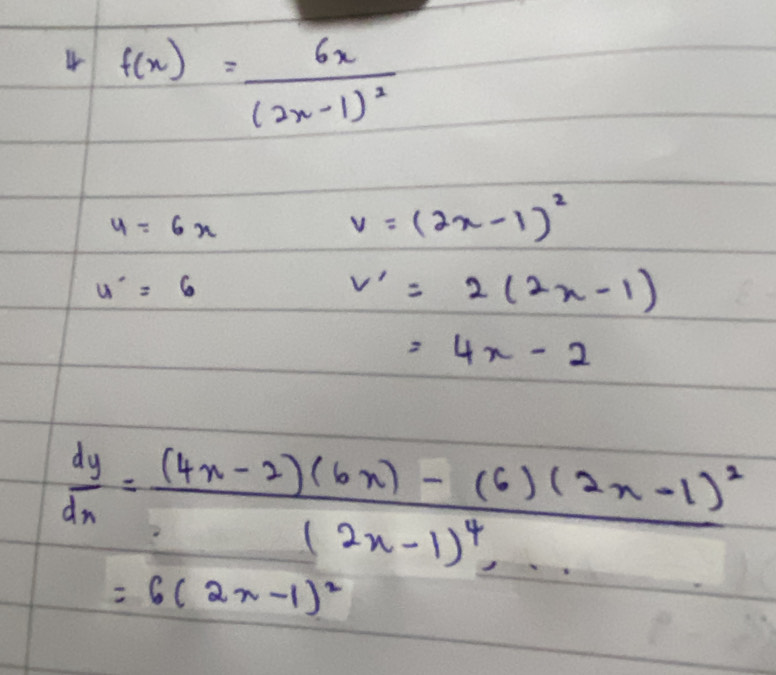 4 f(x) = 6x / (2x-1)²
u = 6x v = (2x-1)²
u' = 6 v' = 2(2x-1)
= 4x - 2
dy/dx = (4x-2)(6x) - (6)(2x-1)² / (2x-1)⁴
= 6(2x-1)²